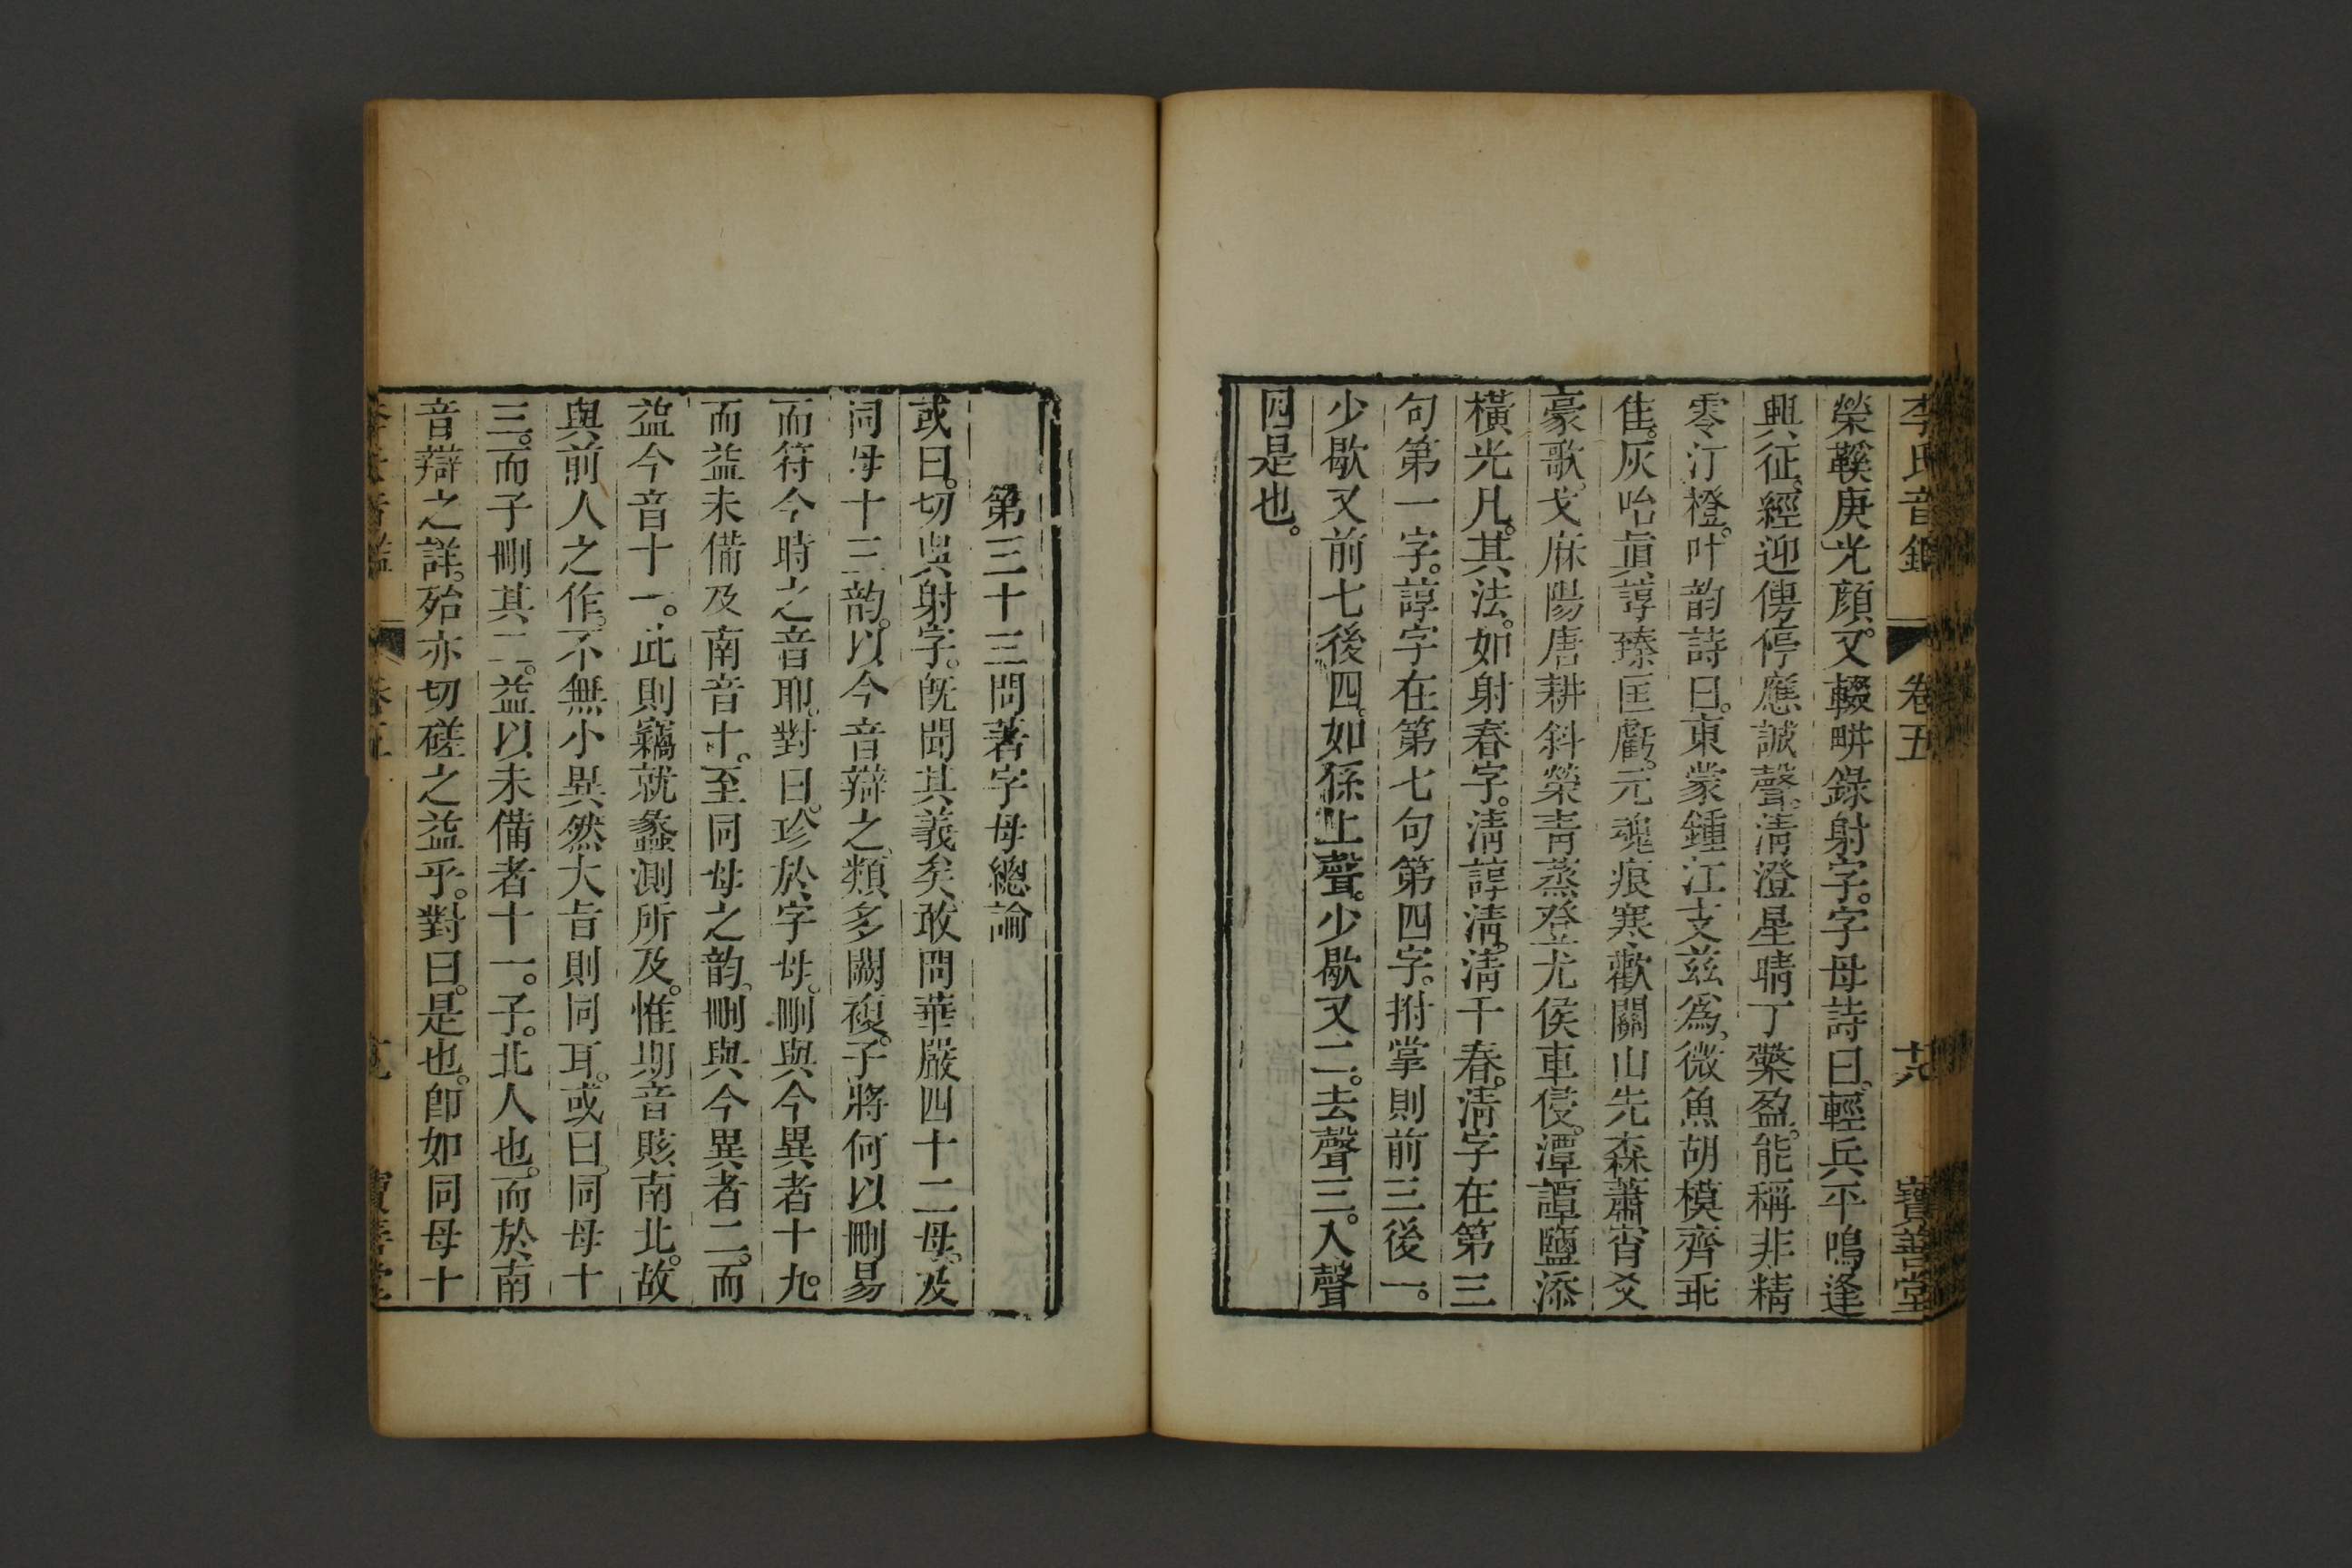 李氏音鑑 卷五 十八 寶善堂
榮鞵庚光顔。又輟畊錄射字。字母詩曰、輕兵平鳴逢
興征。經迎傳停應誠聲。清澄星晴丁檠盈。能稱非精
零汀橙。叶韵詩曰。東蒙鍾江支兹爲、微魚胡模齊乖
佳。灰咍眞諄臻匡虧。元魂痕寒歡關山先森蕭宵爻
豪歌。戈麻陽唐耕斜榮靑蒸登尤侯車侵。潭譚鹽添
橫光凡。其法。如射春字。清諄清。清千春。清字在第三
句第一字。諄字在第七句第四字。拊掌則前三後一。
少歇又前七後四。如係上聲。少歇又二。去聲三。入聲
四是也。
第三十三問著字母總論
或曰。切與射字。旣聞其義矣、敢問華嚴四十二母。及
同母十三韵。以今音辯之、類多闕複。子將何以刪易
而符今時之音耶。對曰。珍於字母。刪與今異者十九。
而益未備及南音十。至同母之韵、刪與今異者二。而
益今音十一。此則竊就蠡測所及。惟期音賅南北。故
與前人之作。不無小異然大旨則同耳。或曰。同母十
三。而子刪其二。益以未備者十一。子。北人也。而於南
音辯之詳。殆亦切磋之益乎。對曰。是也。卽如同母十